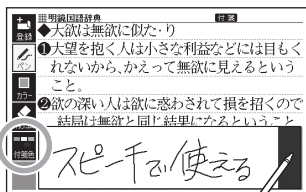 登録
ペン
カラー
付箋色
明鏡国語辞典
付箋
◆大欲は無欲に似た・り
❶大望を抱く人は小さな利益などには目もく
れないから、かえって無欲に見えるという
こと。
❷欲の深い人は欲に惑わされて損を招くので
結局は無欲と同じ結果になるということ
スピーチで使える